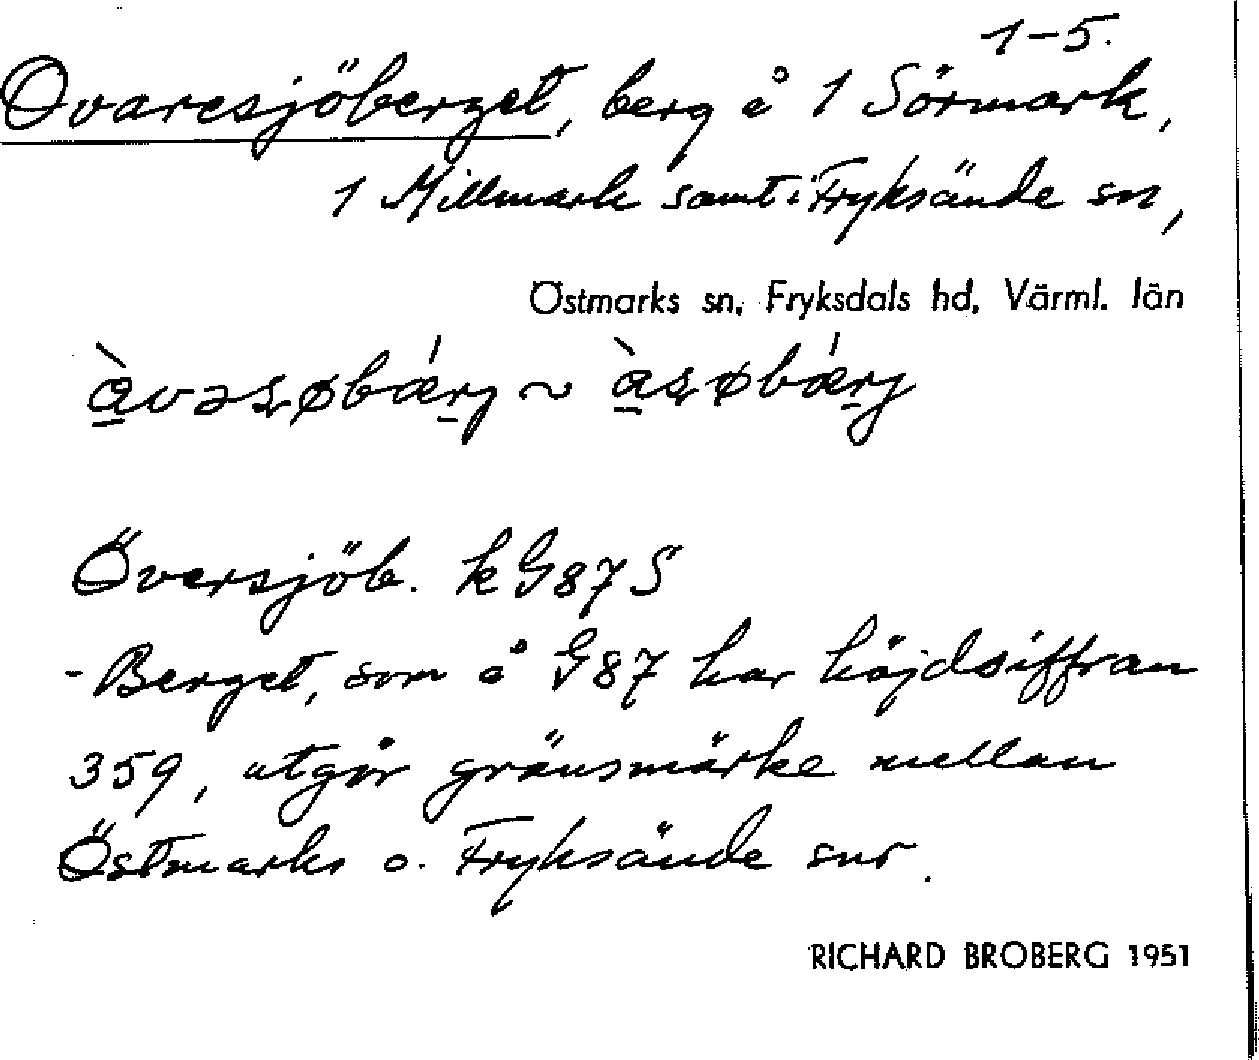 1-5.
Ovaresjöberget, berg å 1 Sörmark,
1 Millmark samt i Fryksände sn,
Östmarks sn, Fryksdals hd, Värml. län
Översjöb. k G87 S
- Berget, som å G87 har höjdsiffran
359, utgör gränsmärke mellan
Östmarks o. Fryksände snr.
RICHARD BROBERG 1951